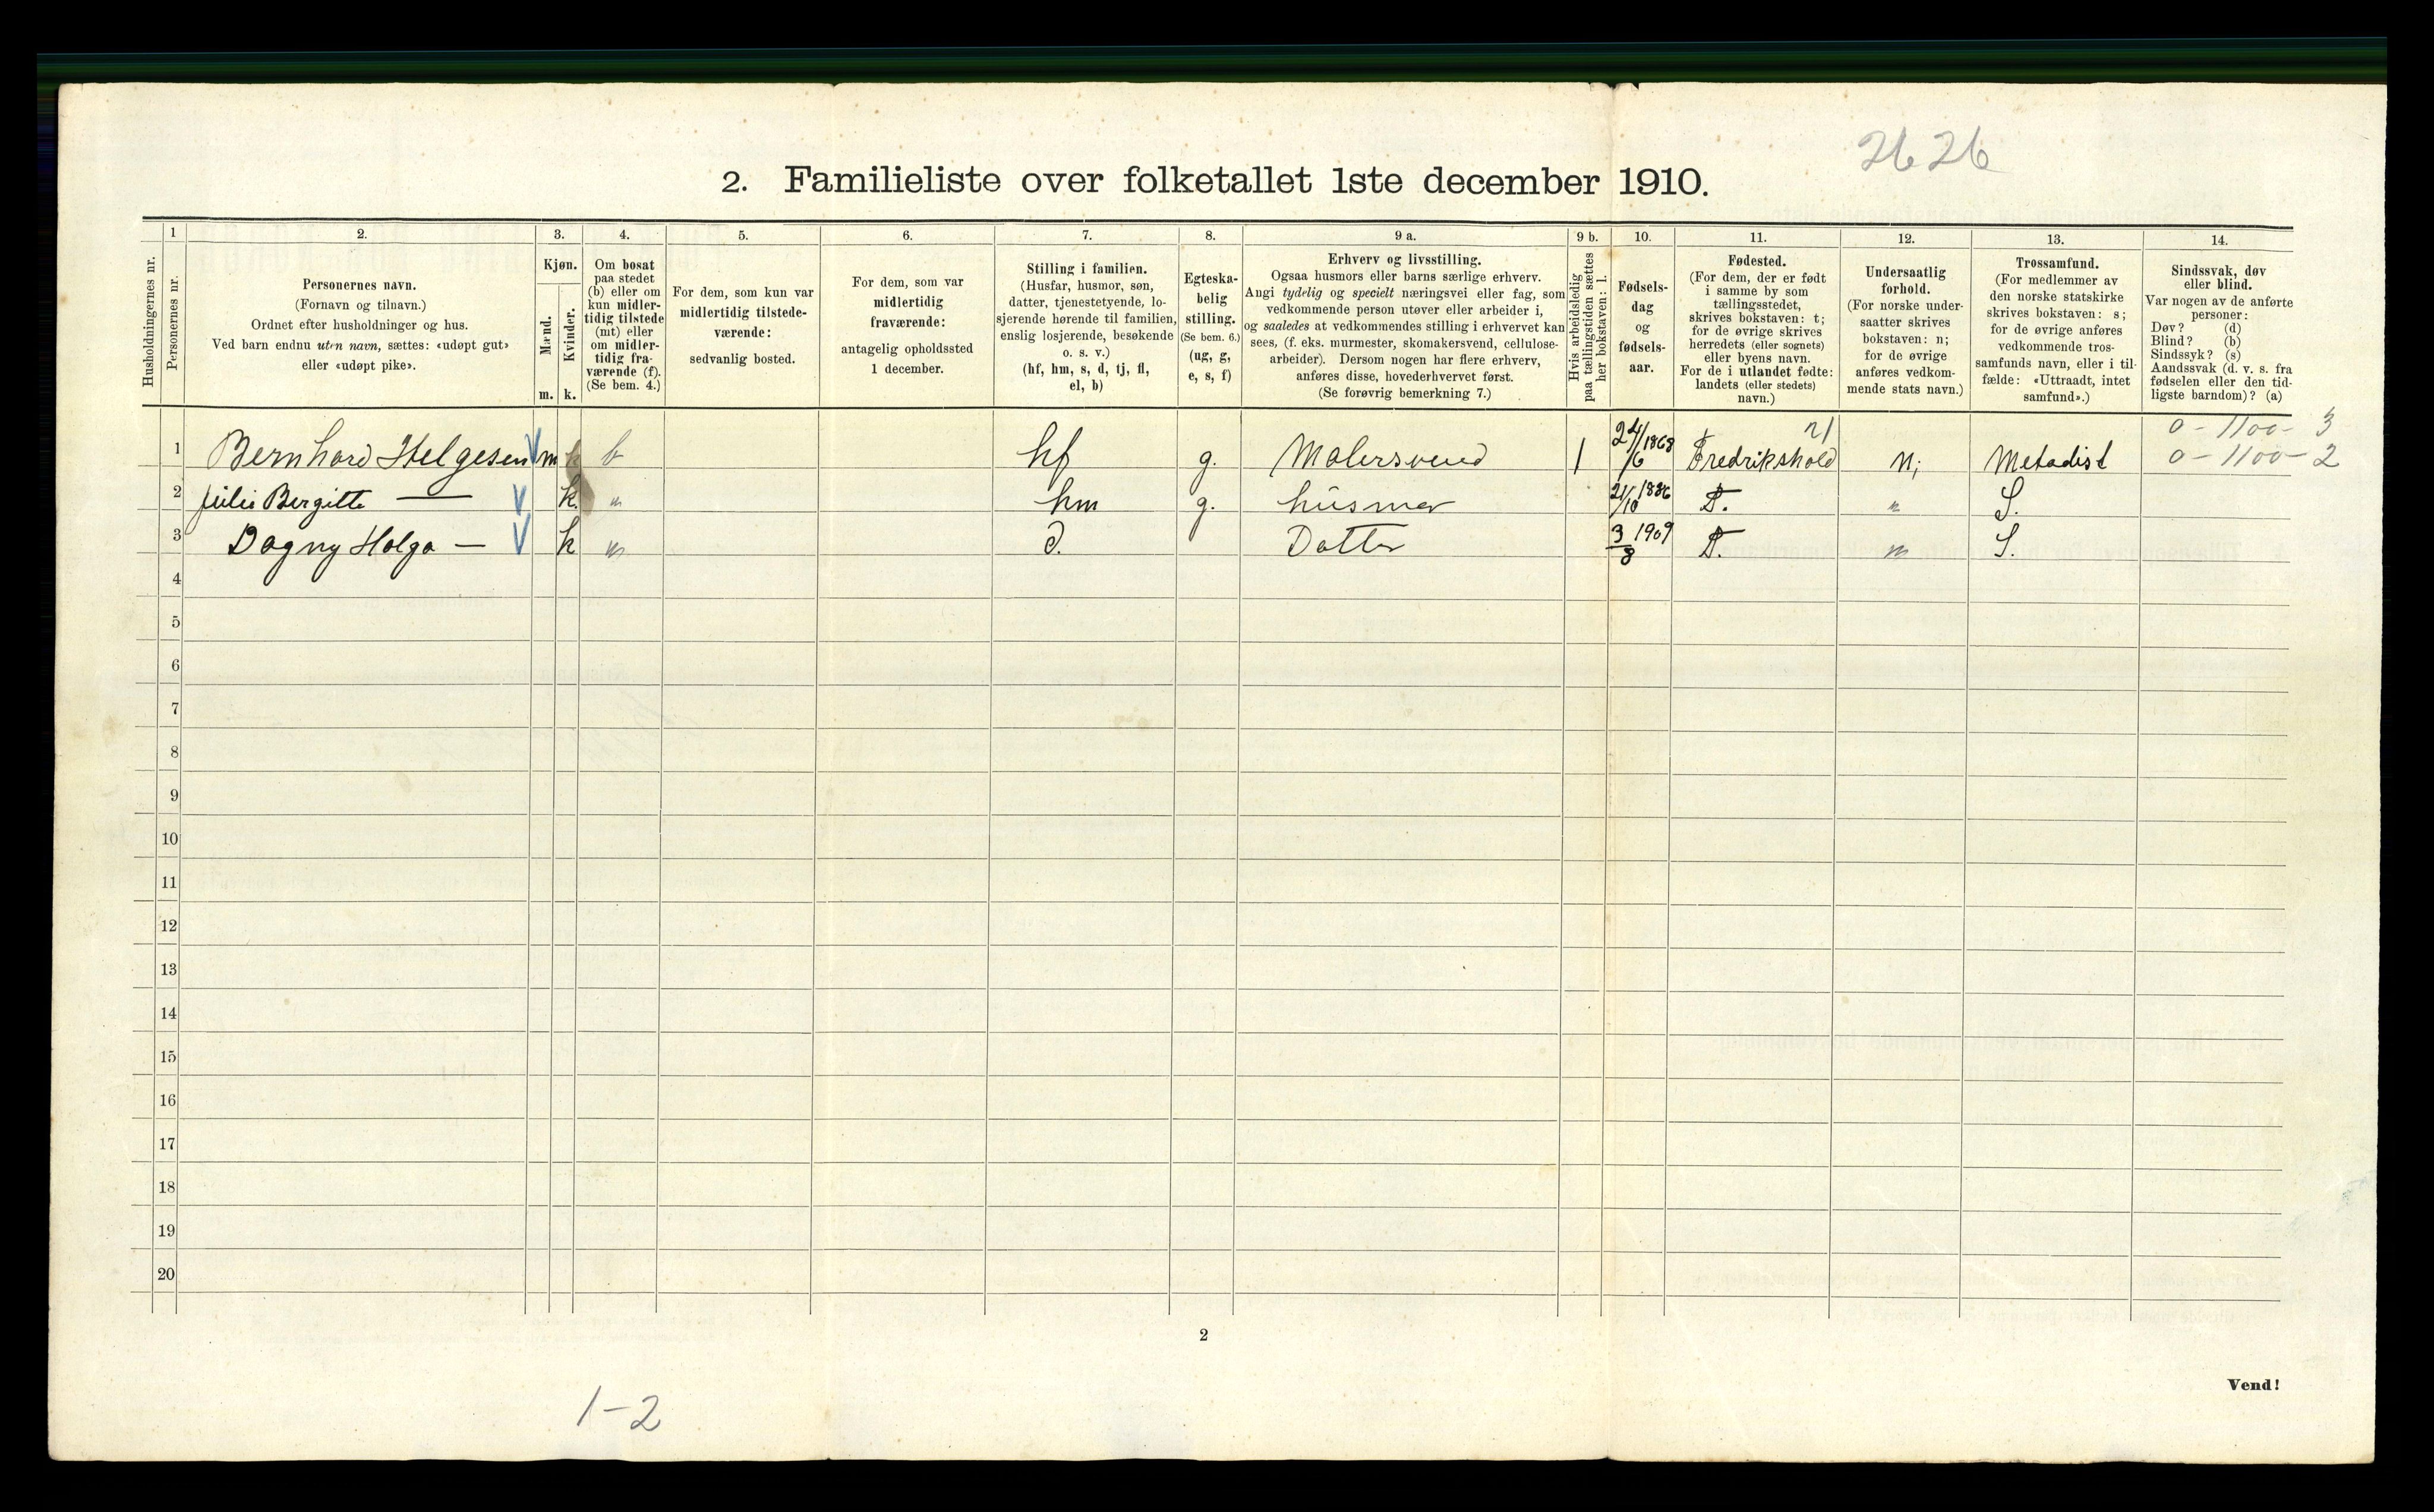 2626
2. Familieliste over folketallet 1ste december 1910.
1 2. 3. 4. 5. 6. 7. 8. 9 a. 9 b. 10. 11. 12. 13. 14.
Husholdningernes nr.
Personernes nr.
Personernes navn.
(Fornavn og tilnavn.)
Ordnet efter husholdninger og hus.
Ved barn endnu uten navn, sættes: «udøpt gut»
eller «udøpt pike».
Kjøn.
Mænd.
Kvinder.
m. k.
Om bosat
paa stedet
(b) eller om
kun midler-
tidig tilstede
(mt) eller
om midler-
tidig fra-
værende (f).
(Se bem. 4.)
For dem, som kun var
midlertidig tilstede-
værende:
sedvanlig bosted.
For dem, som var
midlertidig
fraværende:
antagelig opholdssted
1 december.
Stilling i familien.
(Husfar, husmor, søn,
datter, tjenestetyende, lo-
sjerende hørende til familien,
enslig losjerende, besøkende
o. s. v.)
(hf, hm, s, d, tj, fl,
el, b)
Egteska-
belig
stilling.
(Se bem. 6.)
(ug, g,
e, s, f)
Erhverv og livsstilling.
Ogsaa husmors eller barns særlige erhverv.
Angi tydelig og specielt næringsvei eller fag, som
vedkommende person utøver eller arbeider i,
og saaledes at vedkommendes stilling i erhvervet kan
sees, (f. eks. murmester, skomakersvend, cellulose-
arbeider). Dersom nogen har flere erhverv,
anføres disse, hovederhvervet først.
(Se forøvrig bemerkning 7.)
Hvis arbeidsledig
paa tællingstiden sættes
her bokstaven: l.
Fødsels-
dag
og
fødsels-
aar.
Fødested.
(For dem, der er født
i samme by som
tællingsstedet,
skrives bokstaven: t;
for de øvrige skrives
herredets (eller sognets)
eller byens navn.
For de i utlandet fødte:
landets (eller stedets)
navn.)
Undersaatlig
forhold.
(For norske under-
saatter skrives
bokstaven: n;
for de øvrige
anføres vedkom-
mende stats navn.)
Trossamfund.
(For medlemmer av
den norske statskirke
skrives bokstaven: s;
for de øvrige anføres
vedkommende tros-
samfunds navn, eller i til-
fælde: «Uttraadt, intet
samfund».)
Sindssvak, døv
eller blind.
Var nogen av de anførte
personer:
Døv? (d)
Blind? (b)
Sindssyk? (s)
Aandssvak (d. v. s. fra
fødselen eller den tid-
ligste barndom)? (a)
21 0-1100-3
1 Bernhard Helgesen m b hf g. Malersvend l 24/6 1868 Fredrikshald n; Metodist 0-1100-2
2 Julie Bergitte — k " hm g. husmor 21/10 1886 T. " S.
3 Dagny Helga — k " d. Datter 3/8 1909 T. " S.
4
5
6
7
8
9
10
11
12
13
14
15
16
17
18
19
20
2
Vend!
1-2